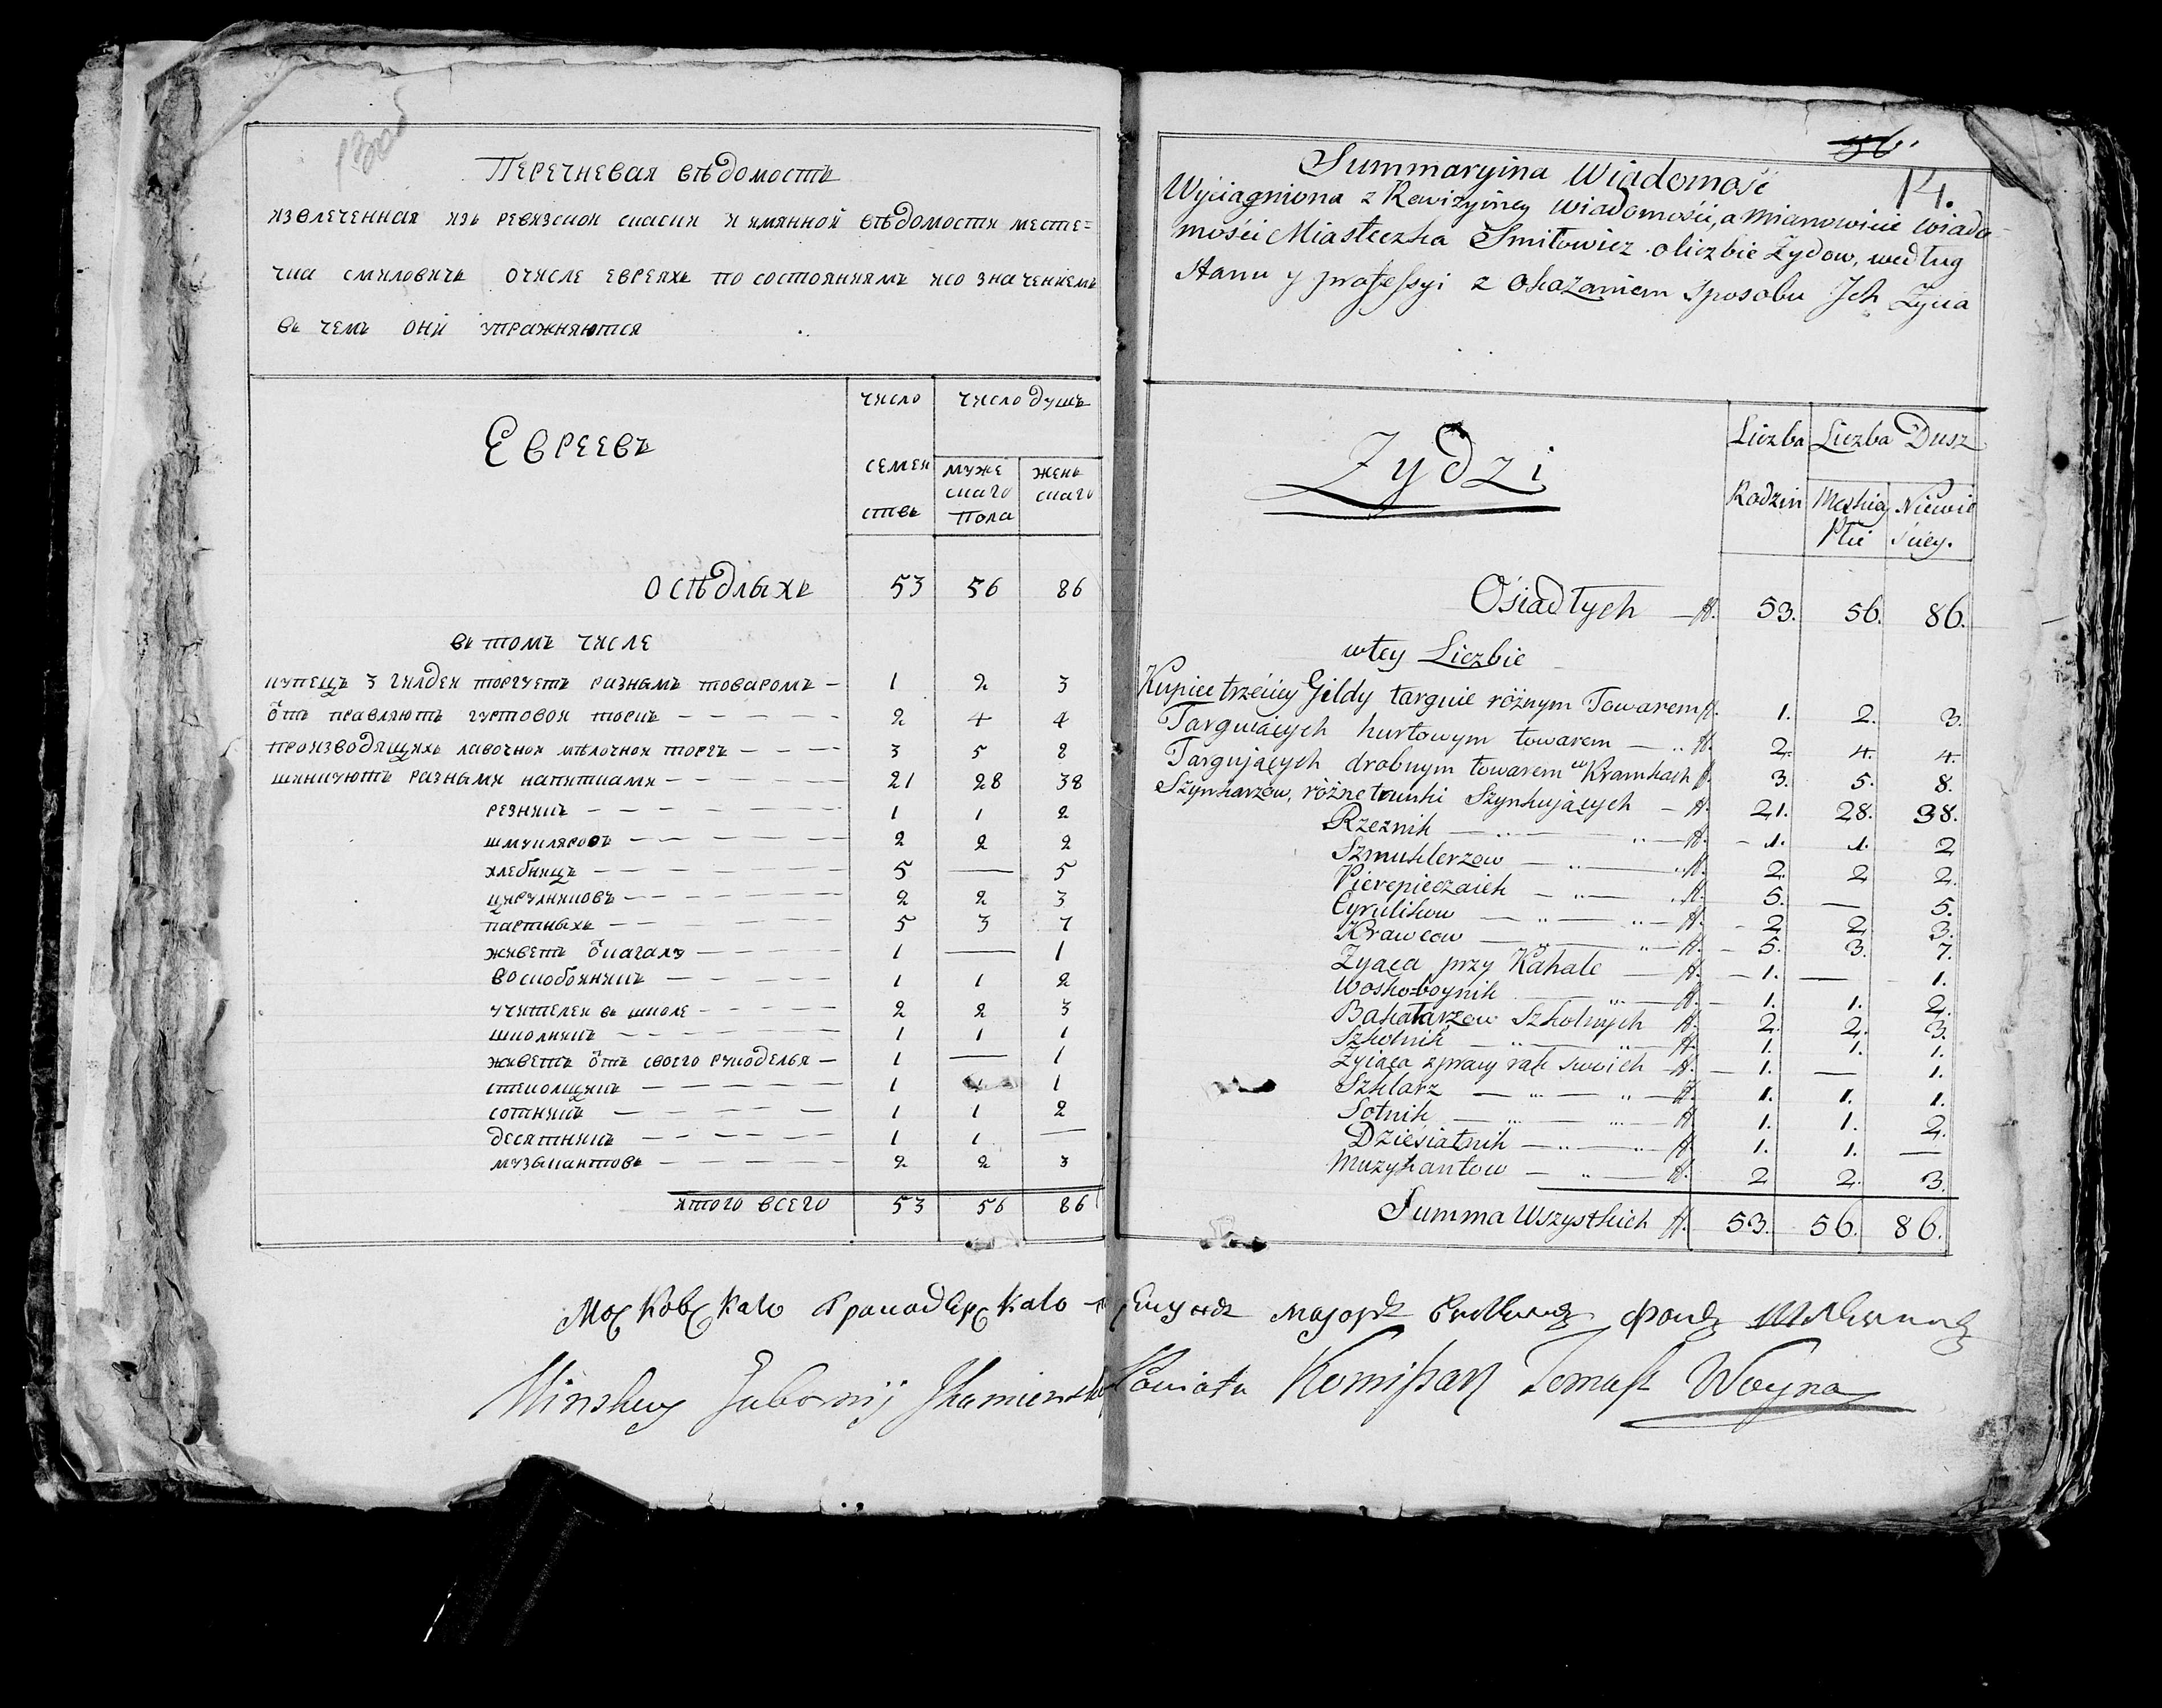 Перечневая вѣдомость
извлеченная изъ ревизской сказки и имянной вѣдомости месте=
чка смиловичъ о числе евреяхъ по состояниямъ исо значениемъ
въ чемъ они упражняются
Евреевъ
число семей ствъ
число душъ
муже скаго пола
жень скаго
осѣдлыхъ 53 56 86
въ томъ числе
купецъ 3 гилдеи торгуетъ разнымъ товаромъ — 1 2 3
отъ правляютъ гуртовой торгъ — 2 4 4
производящихъ лавочной мѣлочной торгъ — 3 5 8
шинкуютъ разными напитками — 21 28 38
резникъ — 1 1 2
шмукляровъ — 2 2 2
хлебницъ — 5 — 5
цируликовъ — 2 2 3
партныхъ — 5 3 7
живетъ ö кагалу — 1 — 1
воскобойникъ — 1 1 2
учителей въ школе — 2 2 3
школникъ — 1 1 1
живетъ отъ своего рукоделья — 1 — 1
стеколщикъ — 1 1 1
сотникъ — 1 1 2
десятникъ — 1 1 —
музыкантовъ — 2 2 3
итого всего 53 56 86
56.
14.
Summaryina Wiadomość
Wyciągniona z Rewizyiney Wiadomości, a mianowicie wiado-
mości Miasteczka Smiłowicz o liczbie Żydow, według
Stanu y professyi z okazaniem sposobu Ich Życia
Żydzi
Liczba Rodzin
Liczba Dusz
Męskiey Płci
Niewieściey.
Osiadłych — 53. 56. 86.
w tey Liczbie
Kupiec trzeciey Gildy targuie różnym Towarem 1. 2. 3.
Targuiących hurtowym towarem — 2. 4. 4.
Targujących drobnym towarem w Kramkach 3. 5. 8.
Szynkarzow, różne trunki Szynkujących — 21. 28. 38.
Rzeznik — 1. 1. 2
Szmuklerzow — 2. 2 2.
Pierepieczaiek — 5. — 5.
Cyrulikow — 2 2 3.
Krawcow — 5. 3. 7.
Zyiąca przy Kahale — 1. — 1.
Woskoboynik — 1. 1. 2.
Bakałarzow Szkolnych 2. 2. 3.
Szkolnik — 1. 1. 1.
Zyiąca z pracy rąk swoich — 1. — 1.
Szklarz — 1. 1. 1.
Sotnik — 1. 1. 2.
Dziesiatnik — 1. 1. —
Muzykantow — 2 2. 3.
Summa Wszystkich 53. 56. 86.
Московскаго Гранодерскаго
маJоръ фонъ
Minskiey Gubernij Ihumienskiego Powiatu Komissarz Tomasz Woyna